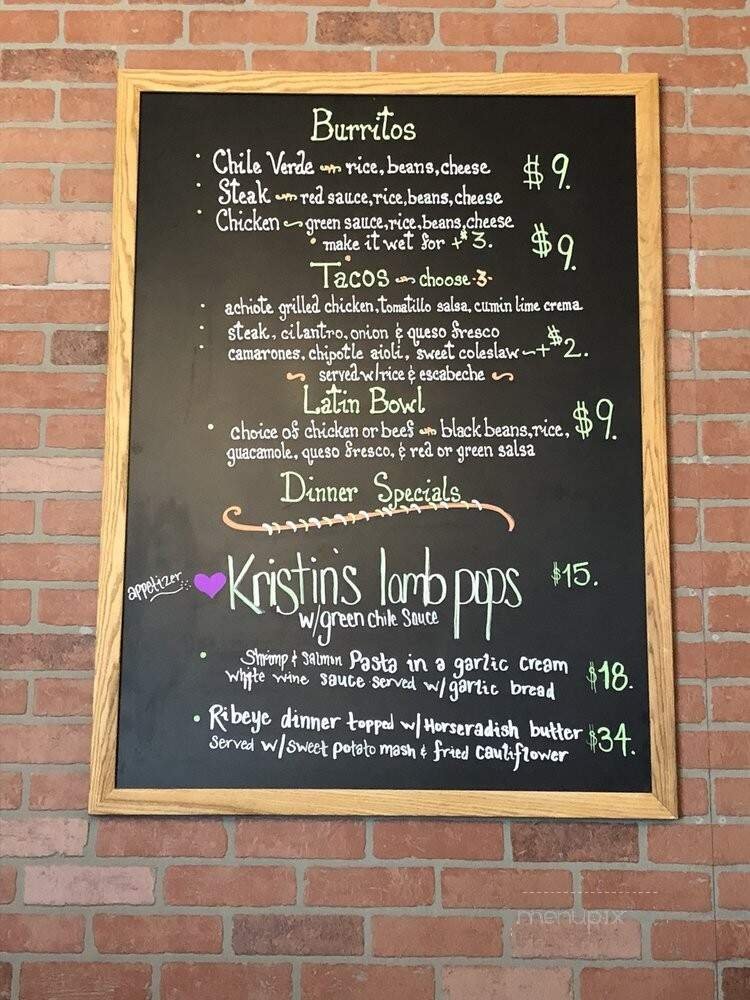 Burritos
• Chile Verde ~ rice, beans, cheese $9.
• Steak ~ red sauce, rice, beans, cheese
• Chicken ~ green sauce, rice, beans, cheese
• make it wet for +$3.
Tacos ~ choose -3- $9.
• achiote grilled chicken, tomatillo salsa, cumin lime crema
• steak, cilantro, onion & queso fresco
• camarones, chipotle aioli, sweet coleslaw ~ +$2.
~ served w/rice & escabeche ~
Latin Bowl
• choice of chicken or beef ~ black beans, rice, $9.
guacamole, queso fresco, & red or green salsa
Dinner Specials
appetizer... Kristin's lamb pops $15.
w/green chile sauce
• Shrimp & Salmon Pasta in a garlic cream $18.
white wine sauce served w/garlic bread
• Ribeye dinner topped w/Horseradish butter $34.
served w/sweet potato mash & fried cauliflower
menupix